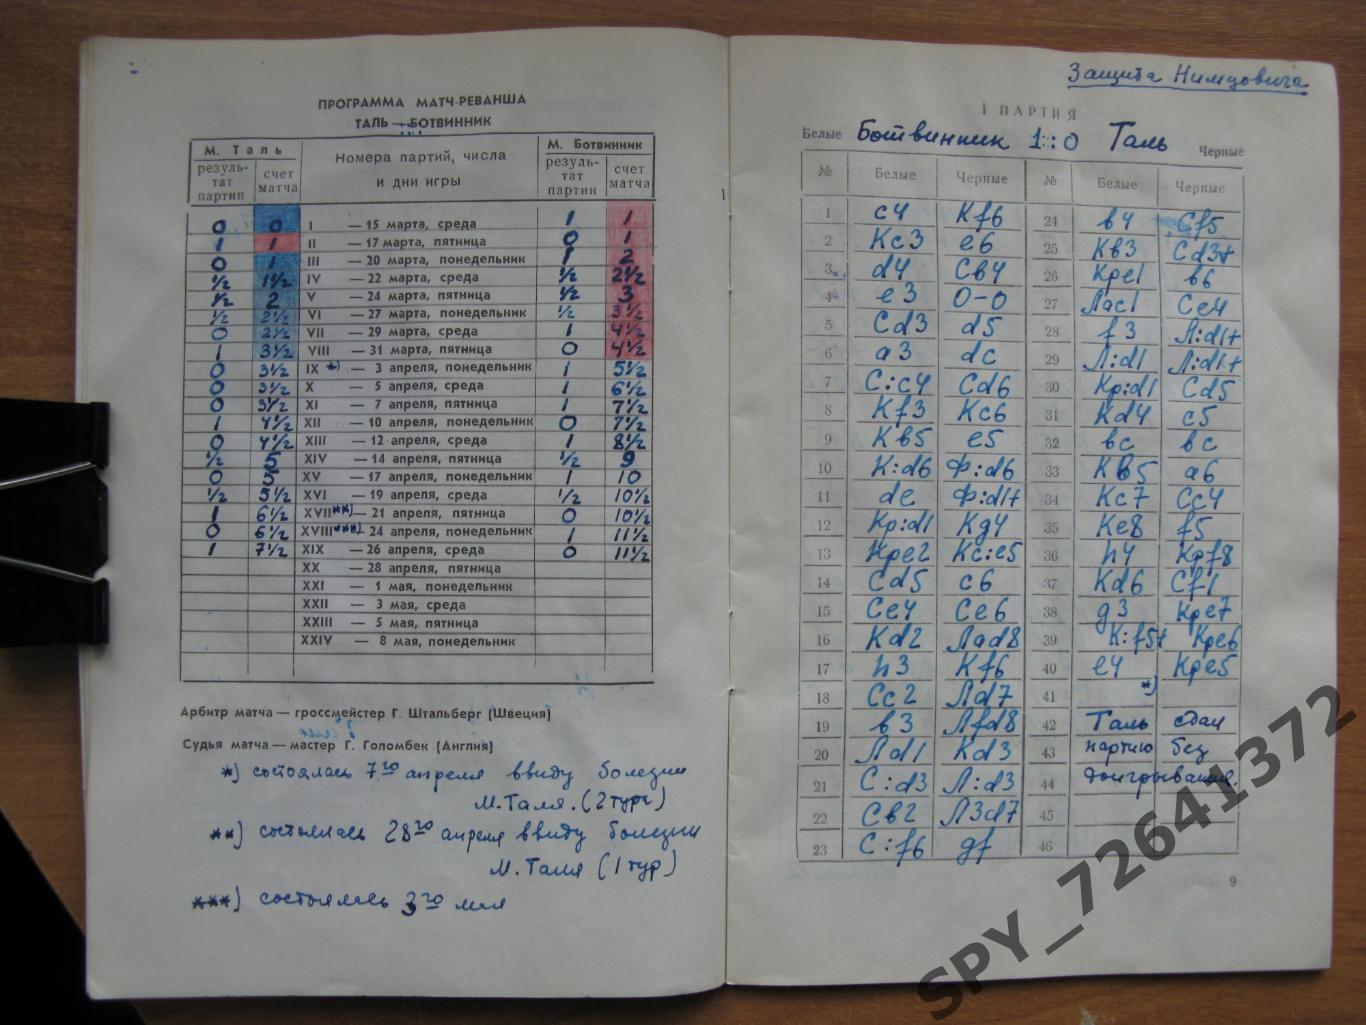 ПРОГРАММА МАТЧ-РЕВАНША
ТАЛЬ — БОТВИННИК
М. Таль Номера партий, числа и дни игры М. Ботвинник
резуль-тат партии счет матча резуль-тат партии счет матча
0 0 I — 15 марта, среда 1 1
1 1 II — 17 марта, пятница 0 1
0 1 III — 20 марта, понедельник 1 2
½ 1½ IV — 22 марта, среда ½ 2½
½ 2 V — 24 марта, пятница ½ 3
½ 2½ VI — 27 марта, понедельник ½ 3½
0 2½ VII — 29 марта, среда 1 4½
1 3½ VIII — 31 марта, пятница 0 4½
0 3½ IX *) — 3 апреля, понедельник 1 5½
0 3½ X — 5 апреля, среда 1 6½
0 3½ XI — 7 апреля, пятница 1 7½
1 4½ XII — 10 апреля, понедельник 0 7½
0 4½ XIII — 12 апреля, среда 1 8½
½ 5 XIV — 14 апреля, пятница ½ 9
0 5 XV — 17 апреля, понедельник 1 10
½ 5½ XVI — 19 апреля, среда ½ 10½
1 6½ XVII **) — 21 апреля, пятница 0 10½
0 6½ XVIII ***) — 24 апреля, понедельник 1 11½
1 7½ XIX — 26 апреля, среда 0 11½
XX — 28 апреля, пятница
XXI — 1 мая, понедельник
XXII — 3 мая, среда
XXIII — 5 мая, пятница
XXIV — 8 мая, понедельник
Арбитр матча — гроссмейстер Г. Штальберг (Швеция)
Судья матча — мастер Г. Голомбек (Англия)
*) состоялась 7го апреля ввиду болезни
М. Таля. (2 тур)
**) состоялась 28го апреля ввиду болезни
М. Таля (1 тур)
***) состоялась 3го мая
Защита Нимцовича
I ПАРТИЯ
Белые Ботвинник 1:0 Таль Черные
№ Белые Черные № Белые Черные
1 c4 Кf6 24 в4 Сf5
2 Кc3 e6 25 Кв3 Сd3+
3 d4 Св4 26 Крe1 в6
4 e3 0-0 27 Лac1 Сe4
5 Сd3 d5 28 f3 Л:d1+
6 a3 dc 29 Л:d1 Л:d1+
7 С:c4 Сd6 30 Кр:d1 Сd5
8 Кf3 Кc6 31 Кd4 c5
9 Кв5 e5 32 вc вc
10 К:d6 Ф:d6 33 Кв5 a6
11 de Ф:d1+ 34 Кc7 Сc4
12 Кр:d1 Кg4 35 Кe8 f5
13 Крe2 Кc:e5 36 h4 Крf8
14 Сd5 c6 37 Кd6 Сf1
15 Сe4 Сe6 38 g3 Крe7
16 Кd2 Лad8 39 К:f5+ Крe6
17 h3 Кf6 40 e4 Крe5
18 Сc2 Лd7 41 *)
19 в3 Лfd8 42 Таль сдал
20 Лd1 Кd3 43 партию без
21 С:d3 Л:d3 44 доигрывания.
22 Св2 Л3d7 45
23 С:f6 gf 46
9
SPY_72641372